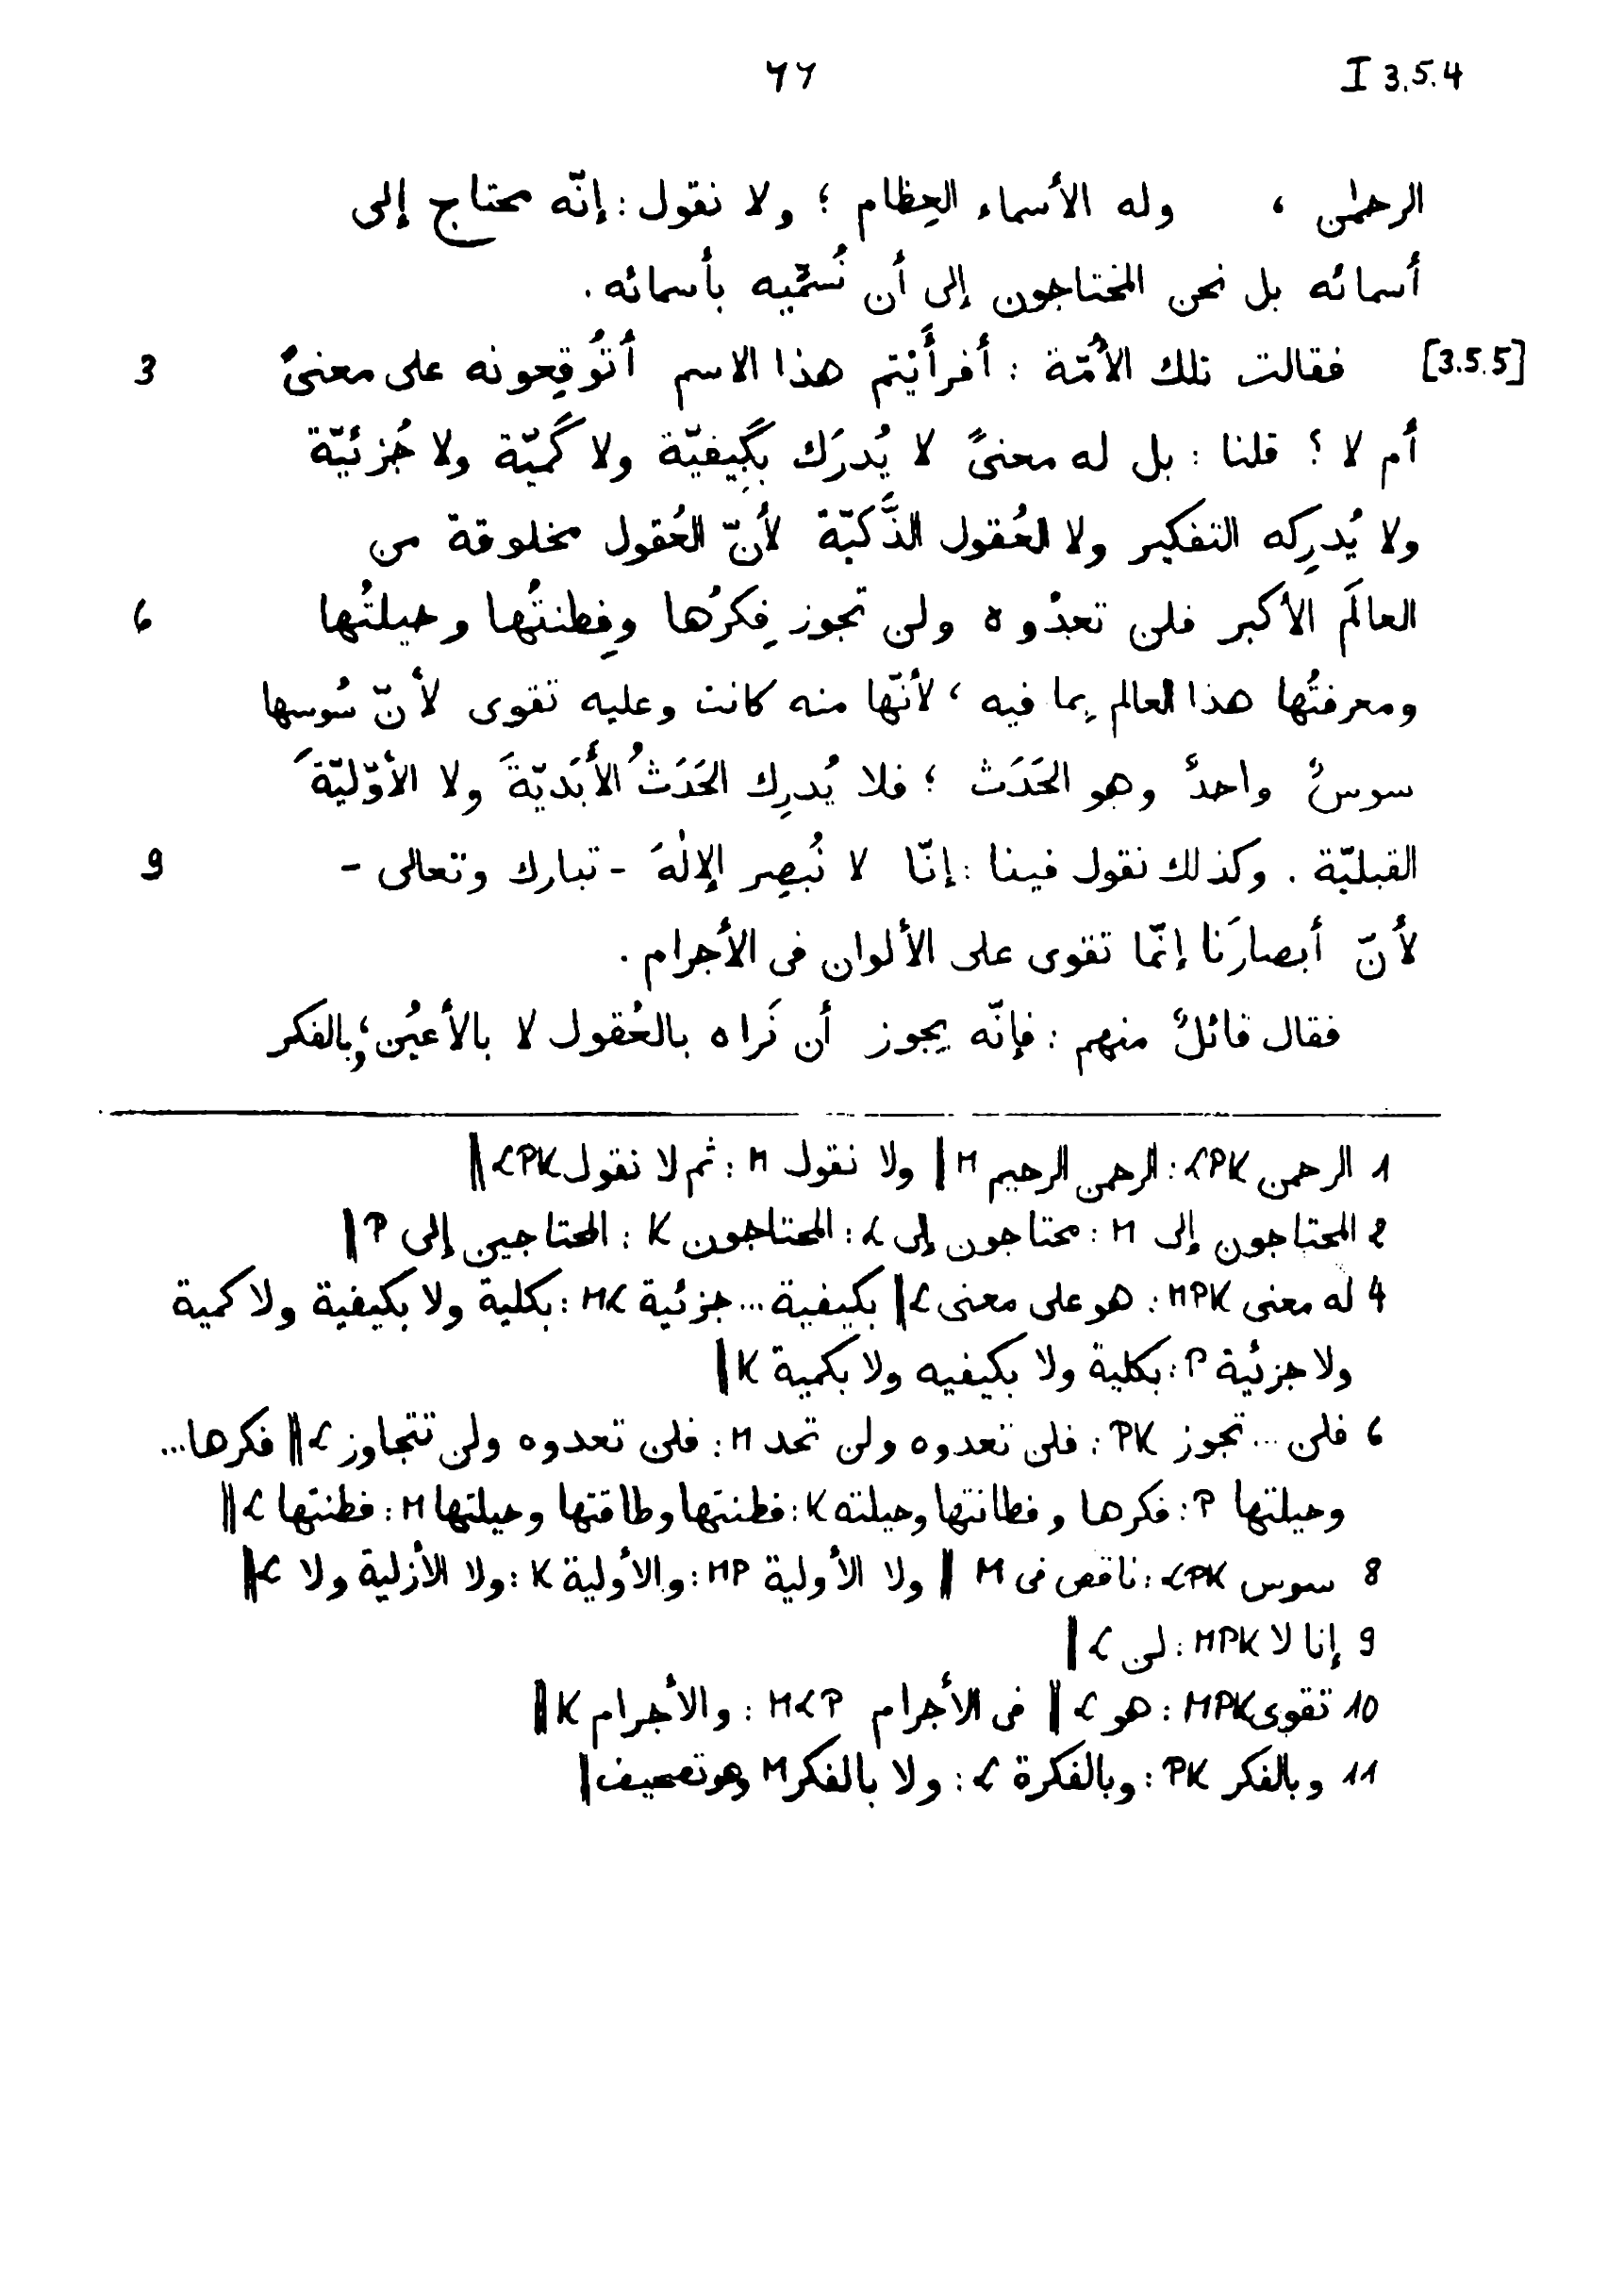 ٦٦ I 3.5.4
الرحمٰن ، وله الأسماء العِظام ؛ ولا نقول : إنّه محتاج إلى
أسمائه بل نحن المحتاجون إلى أن نُسمّيه بأسمائه .
[3.5.5] فقالت تلك الأُمّة : أفرأَيْتم هذا الاسم أتُوقِعونه على معنىً 3
أم لا ؟ قلنا : بل له معنىً لا يُدرَك بكَيفيّة ولا كَميّة ولا جُزئيّة
ولا يُدرِكه التفكير ولا العُقول الذَّكيّة لأنّ العُقول مخلوقة من
العالَم الأكبر فلن تعدُوه ولن تجوز فِكرُها وفِطنتُها وحيلتُها 6
ومعرفتُها هذا العالم بِما فيه ، لأنّها منه كانت وعليه تقوى لأنّ سُوسها
سوسٌ واحدٌ وهو الحَدَث ؛ فلا يُدرِك الحَدَثُ الأَبَديّةَ ولا الأوّليّةَ
القبليّة . وكذلك نقول فينا : إنّا لا نُبصِر الإلٰهَ - تبارك وتعالى - 9
لأنّ أبصارَنا إنّما تقوى على الألوان فى الأجرام .
فقال قائلٌ منهم : فإنّه يجوز أن نَراه بالعُقول لا بالأعيُن ؛ وبالفكر
1 الرحمن LPK : الرحمن الرحيم M ‖ ولا نقول M : ثم لا نقول LPK ‖
2 المحتاجون إلى M : محتاجون إلى L : المحتاجون K : المحتاجين إلى P ‖
4 له معنى MPK : هو على معنى L ‖ بكيفية ... جزئية ML : بكلية ولا بكيفية ولا كمية
ولا جزئية P : بكلية ولا بكيفيه ولا بكمية K ‖
6 فلن ... تجوز PK : فلن تعدوه ولن تحد M : فلن تعدوه ولن تتجاوز L ‖ فكرها ...
وحيلتها P : فكرها وفطانتها وحيلته K : فطنتها وطاقتها وحيلتها M : فطنتها L ‖
8 سوس LPK : ناقص فى M ‖ ولا الأولية MP : والأولية K : ولا الأزلية ولا L ‖
9 إنا لا MPK : لن L ‖
10 تقوى MPK : هو L ‖ فى الأجرام MLP : والأجرام K ‖
11 وبالفكر PK : وبالفكرة L : ولا بالفكر M وهو تصحيف ‖